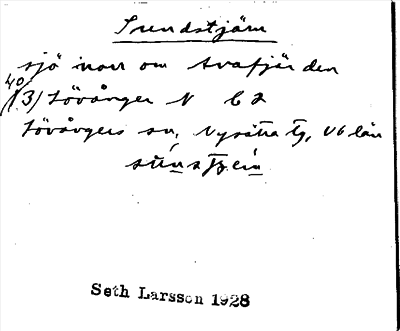 Sundstjärn
sjö norr om Avafjärden
40
(3) Lövånger N C2
Lövångers sn, Nysätra tg, Vb län
Seth Larsson 1928